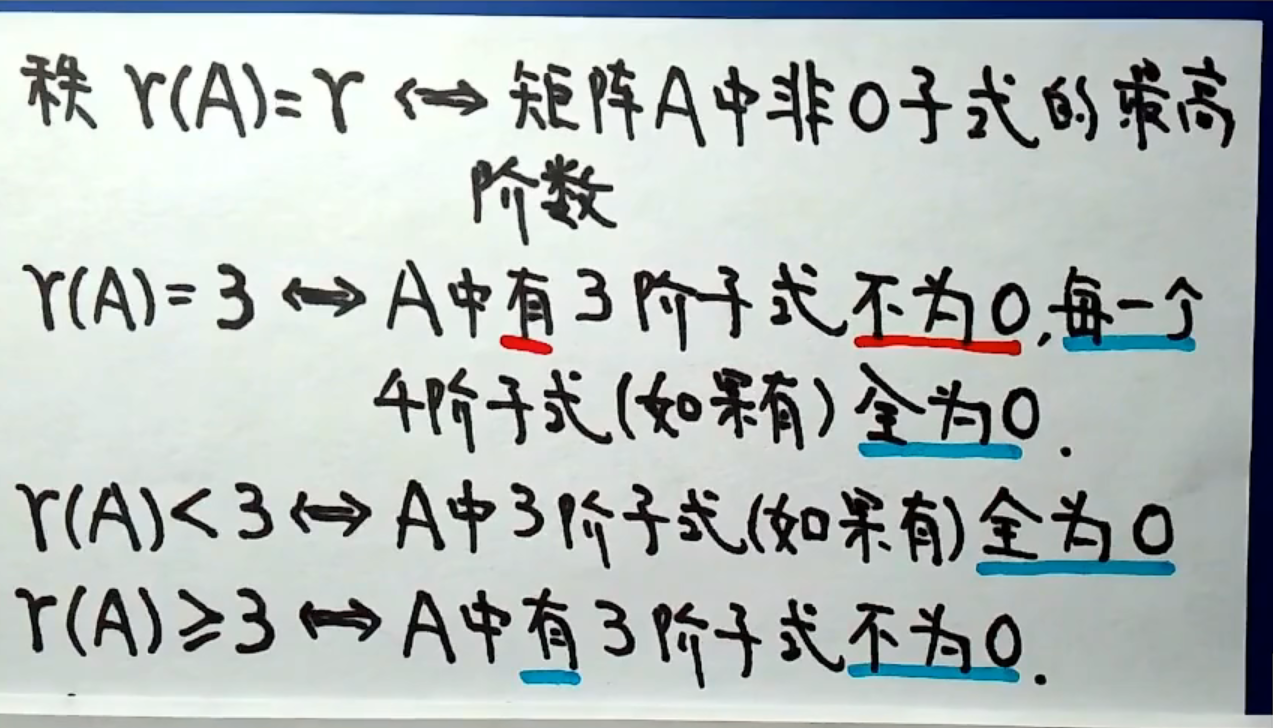 秩 r(A)=r ⟺ 矩阵A中非0子式的最高
阶数
r(A)=3 ⟺ A中有3阶子式不为0,每一个
4阶子式(如果有)全为0.
r(A)<3 ⟺ A中3阶子式(如果有)全为0
r(A)≥3 ⟺ A中有3阶子式不为0.